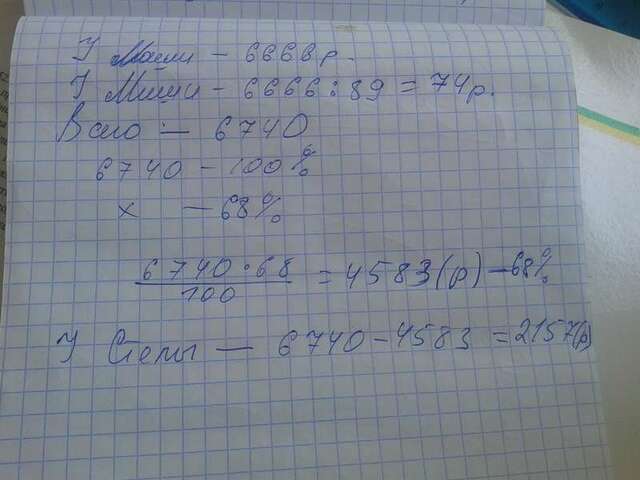 У Маши - 6666 р.
У Миши - 6666 : 89 = 74р.
Всего - 6740
6740 - 100%
х - 68%
6740 · 68 / 100 = 4583 (р) - 68%
У Степы - 6740 - 4583 = 2157(р)